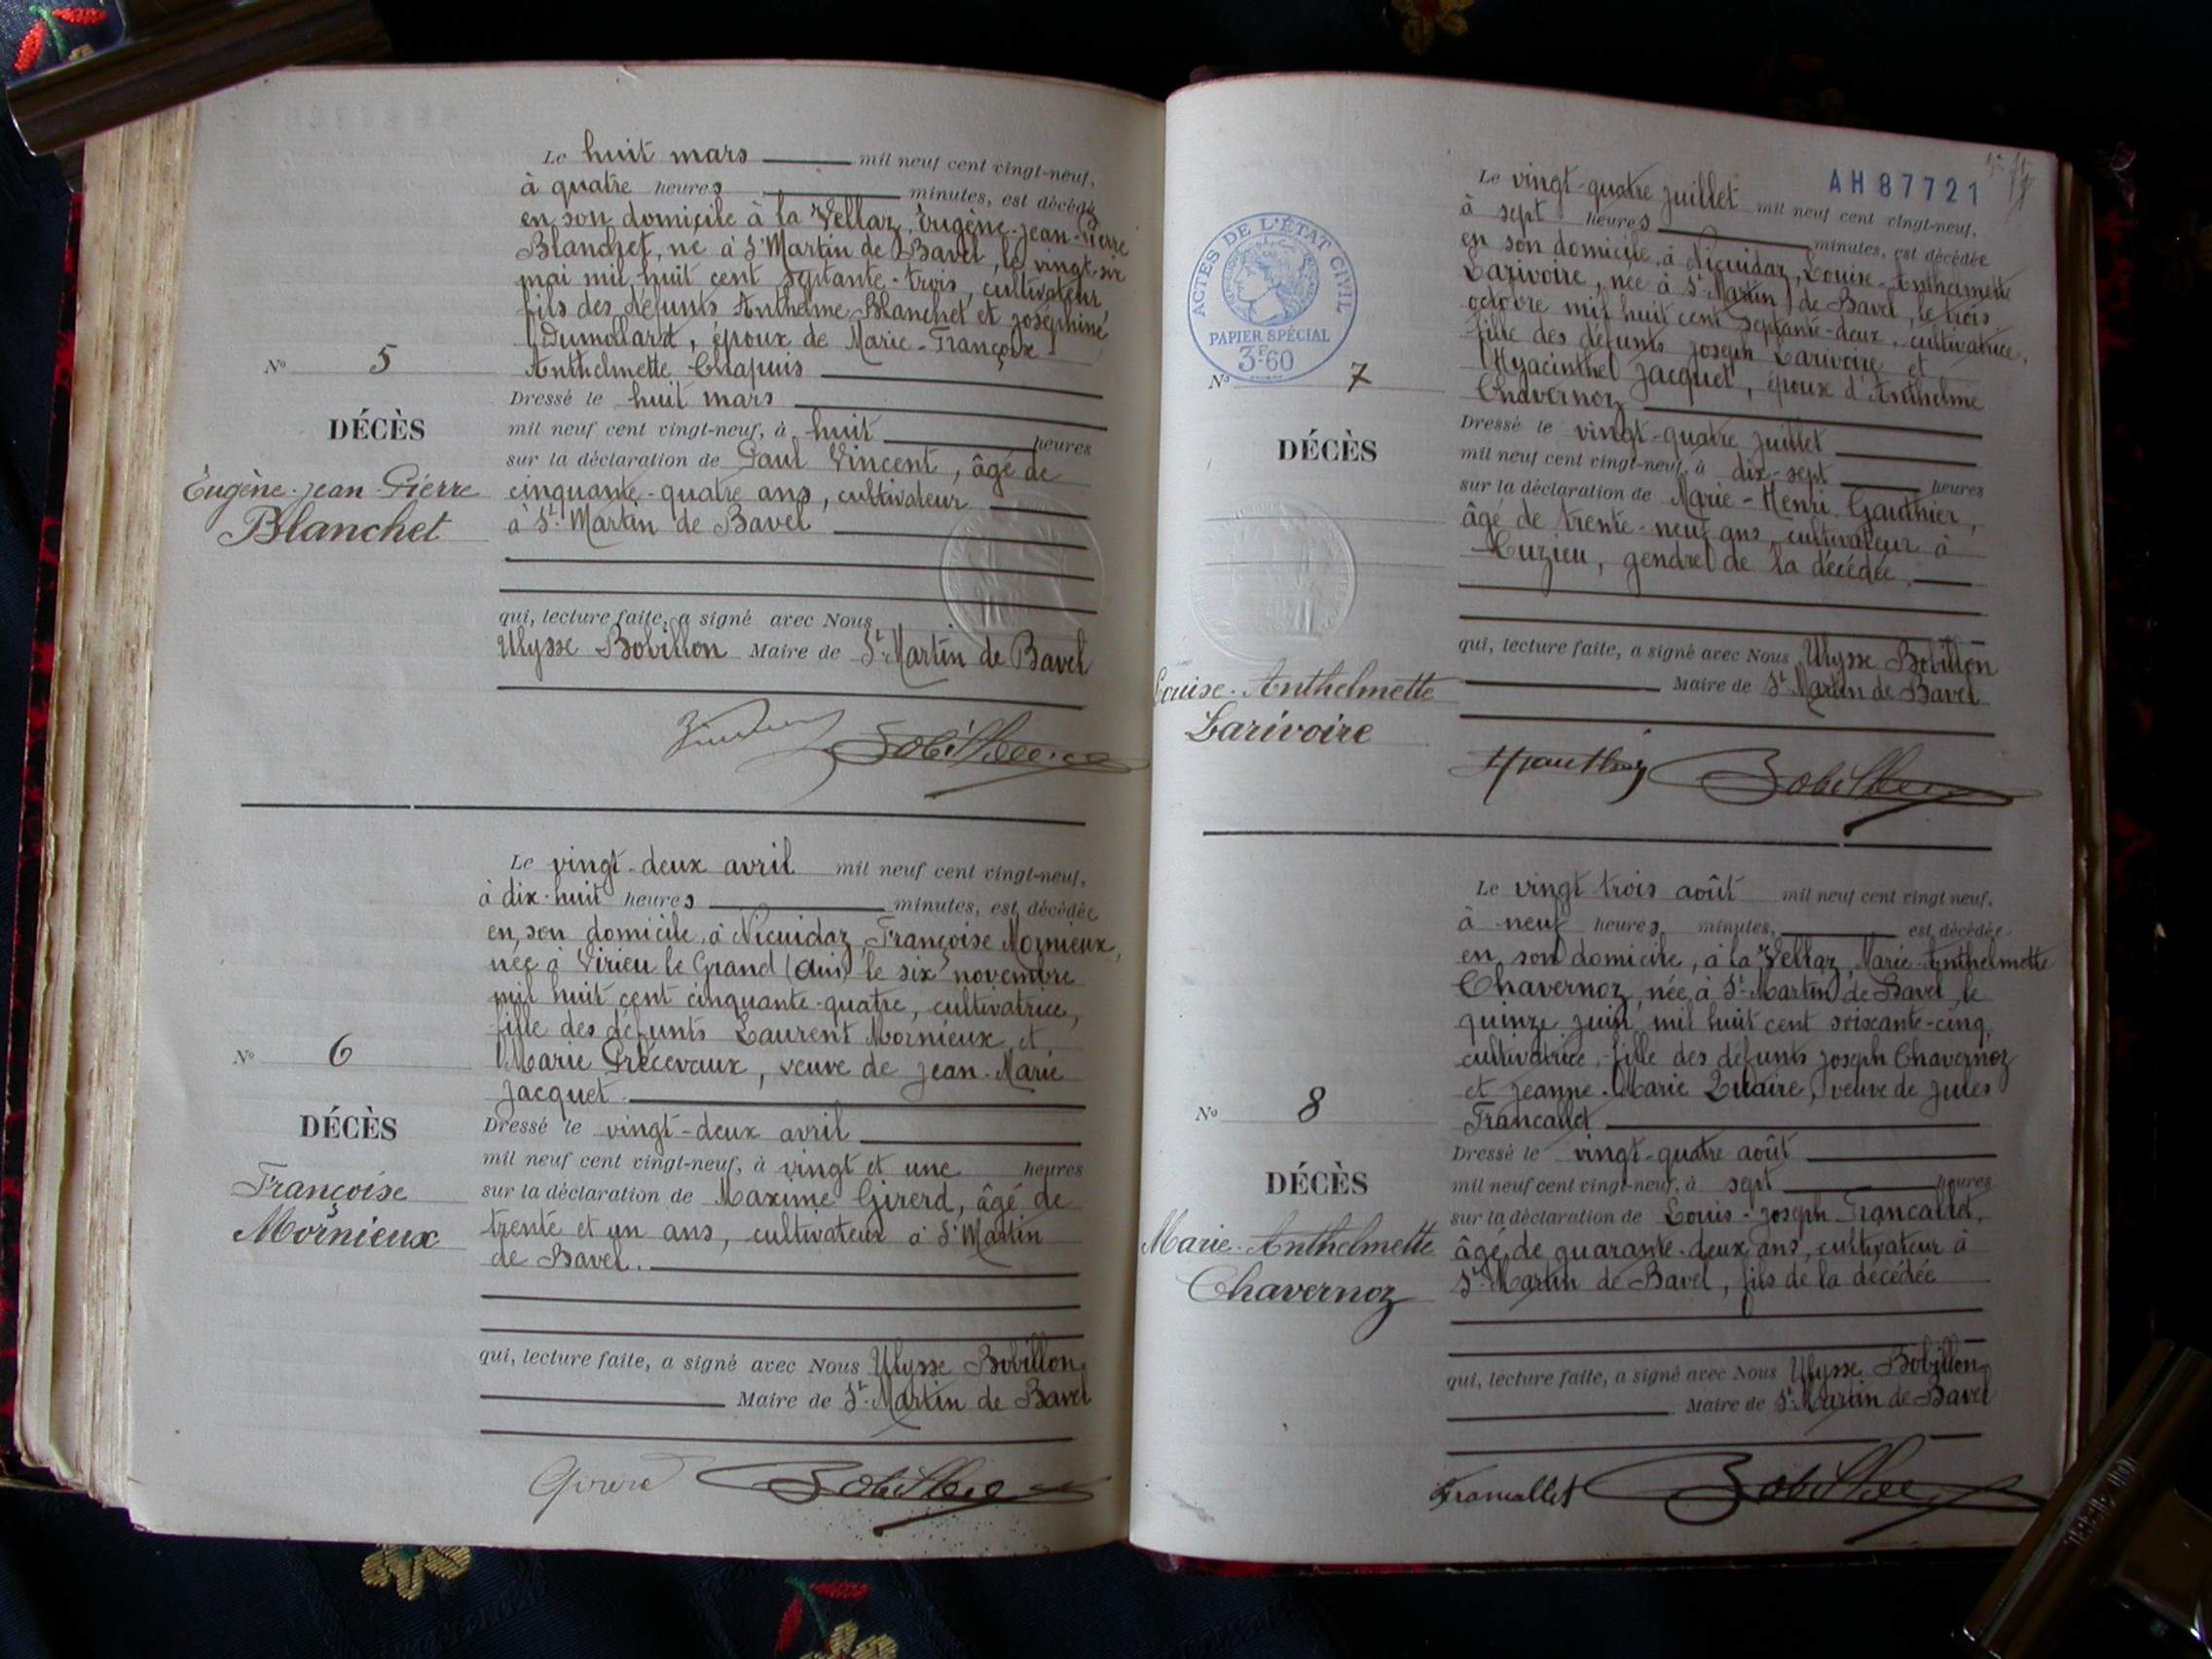 Le huit mars mil neuf cent vingt-neuf,
à quatre heures minutes, est décédé
en son domicile à la Vellaz, Eugène-Jean-Pierre
Blanchet, né à St Martin de Bavel, le vingt-six
mai mil huit cent septante-trois, cultivateur
fils des défunts Anthelme Blanchet et Joséphine
Dumollard, époux de Marie-Françoise-
Anthelmette Chapuis
Dressé le huit mars
mil neuf cent vingt-neuf, à huit heures
sur la déclaration de Paul Vincent, âgé de
cinquante-quatre ans, cultivateur
à St Martin de Bavel
qui, lecture faite, a signé avec Nous
Ulysse Bobillon Maire de St Martin de Bavel
No 5
DÉCÈS
Eugène-Jean-Pierre
Blanchet
Bobillon
Le vingt-deux avril mil neuf cent vingt-neuf,
à dix-huit heures minutes, est décédée
en son domicile, à Nicuidaz, Françoise Mornieux,
née à Virieu le Grand (Ain) le six novembre
mil huit cent cinquante-quatre, cultivatrice,
fille des défunts Laurent Mornieux et
Marie Précevaux, veuve de Jean-Marie
Jacquet.
Dressé le vingt-deux avril
mil neuf cent vingt-neuf, à vingt et une heures
sur la déclaration de Maxime Girerd, âgé de
trente et un ans, cultivateur à St Martin
de Bavel.
qui, lecture faite, a signé avec Nous Ulysse Bobillon,
Maire de St Martin de Bavel
No 6
DÉCÈS
Françoise
Mornieux
Girerd Bobillon
AH87721
Le vingt-quatre juillet mil neuf cent vingt-neuf,
à sept heures minutes, est décédée
en son domicile, à Nicuidaz, Louise-Anthelmette
Larivoire, née à St Martin de Bavel, le trois
octobre mil huit cent septante-deux, cultivatrice,
fille des défunts Joseph Larivoire et
Hyacinthe Jacquet, époux d'Anthelme
Chavernoz
Dressé le vingt-quatre juillet
mil neuf cent vingt-neuf, à dix-sept heures
sur la déclaration de Marie-Henri Gauthier,
âgé de trente-neuf ans, cultivateur à
Cuzieu, gendre de la décédée.
qui, lecture faite, a signé avec Nous Ulysse Bobillon
Maire de St Martin de Bavel
ACTES DE L'ÉTAT CIVIL
PAPIER SPÉCIAL
3F60
No 7
DÉCÈS
Louise-Anthelmette
Larivoire
HGauthier Bobillon
Le vingt trois août mil neuf cent vingt neuf,
à neuf heures, minutes, est décédée
en son domicile, à la Vellaz, Marie-Anthelmette
Chavernoz, née à St Martin de Bavel, le
quinze juin mil huit cent soixante-cinq,
cultivatrice, fille des défunts Joseph Chavernoz
et Jeanne-Marie veuve de Jules
Francallet
Dressé le vingt-quatre août
mil neuf cent vingt-neuf, à sept heures
sur la déclaration de Louis-Joseph Francallet,
âgé de quarante-deux ans, cultivateur à
St Martin de Bavel, fils de la décédée
qui, lecture faite, a signé avec Nous Ulysse Bobillon,
Maire de St Martin de Bavel
No 8
DÉCÈS
Marie-Anthelmette
Chavernoz
Francallet Bobillon